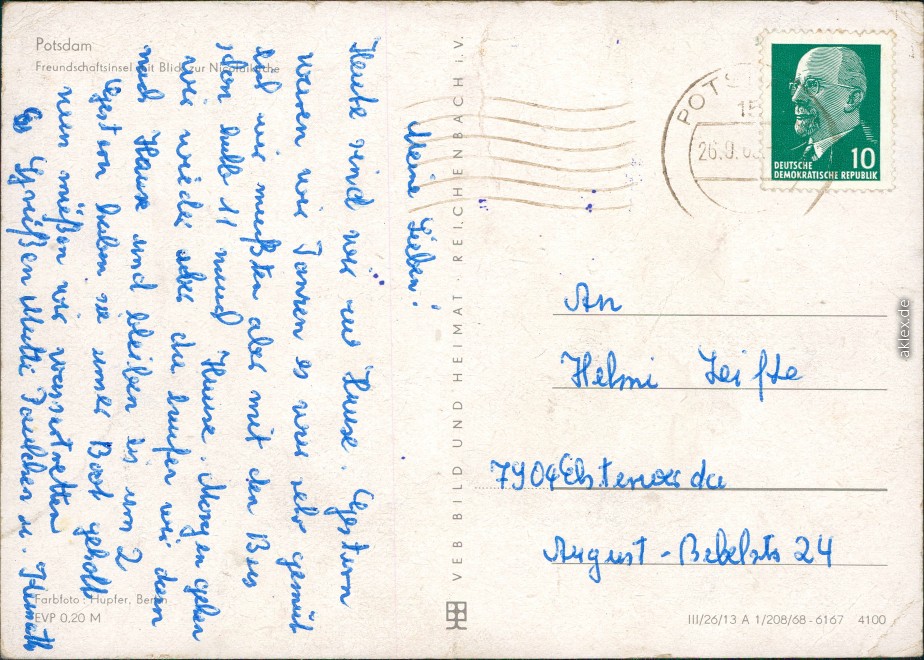 Potsdam
Freundschaftsinsel mit Blick zur Nicolaikirche
Meine Lieben!
Heute sind wir zu Hause. Gestern
waren wir Tanzen es war sehr gemüt
lich wir mußten aber mit den Bus
schon halb 11 nach Hause. Morgen gehen
wir wieder aber da laufen wir dann
nach Hause und bleiben bis um 2
Gestern haben sie unser Boot geholt
nun müßen wir
Es Grüßen Mutti u.
Farbfoto: Hupfer, Berlin
EVP 0,20 M
VEB BILD UND HEIMAT · REICHENBACH i.V.
POTS
15
26.9.6
DEUTSCHE
DEMOKRATISCHE REPUBLIK 10
An
Helmi
7904 Elsterwerda
August-Bebelstr 24
III/26/13 A 1/208/68-6167 4100
aklex.de